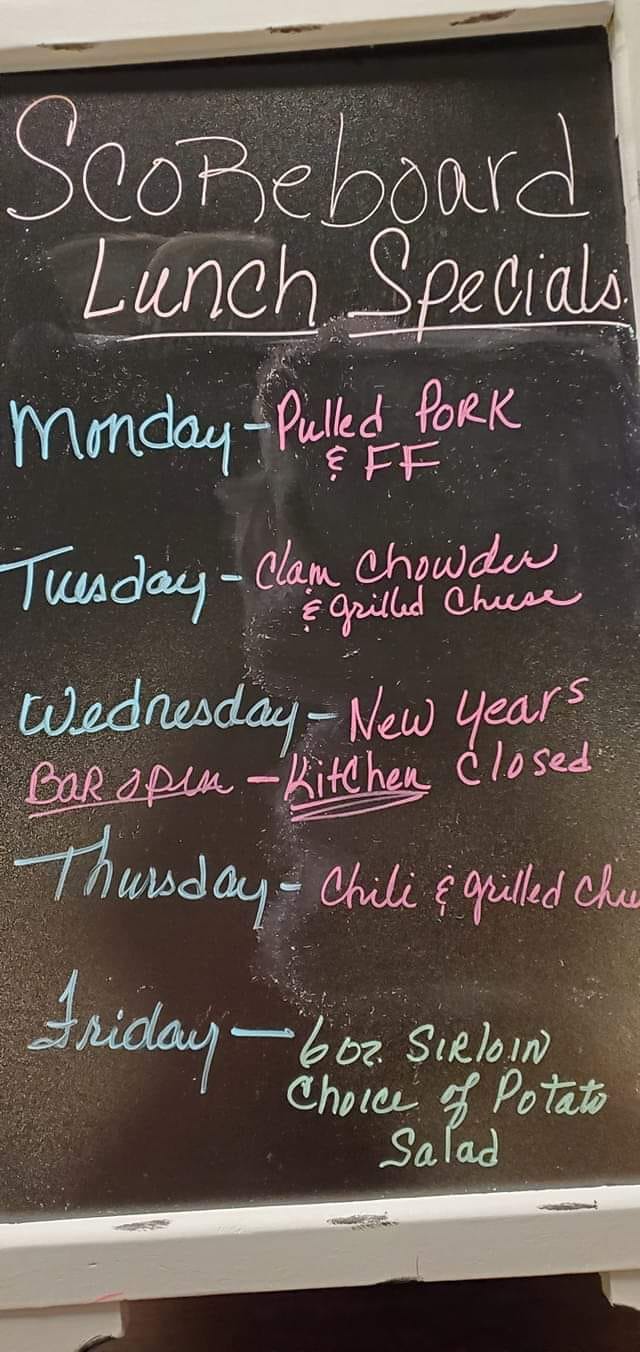 Scoreboard
Lunch Specials
Monday - Pulled Pork
& FF
Tuesday - Clam Chowder
& grilled Cheese
Wednesday - New Years
Bar open - Kitchen Closed
Thursday - Chili & grilled Chee
Friday - 6 oz. Sirloin
Choice of Potato
Salad